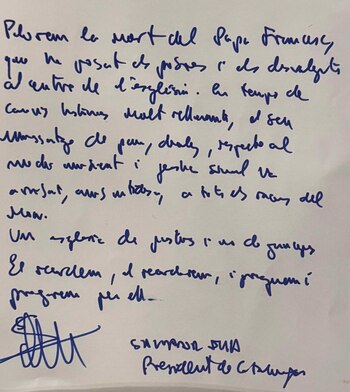 Plorem la mort del Papa Francesc,
que ha posat els pobres i els desvalguts
al centre de l'església. En temps de
canvis històrics molt rellevants, el seu
missatge de pau, diàleg, respecte al
medi ambient i justícia social ha
arribat, a tots els racons del
món.
Un església de justos i no de
El recordem, el recordarem, i preguem i
pregarem per ell.
SALVADOR ILLA
President de Catalunya